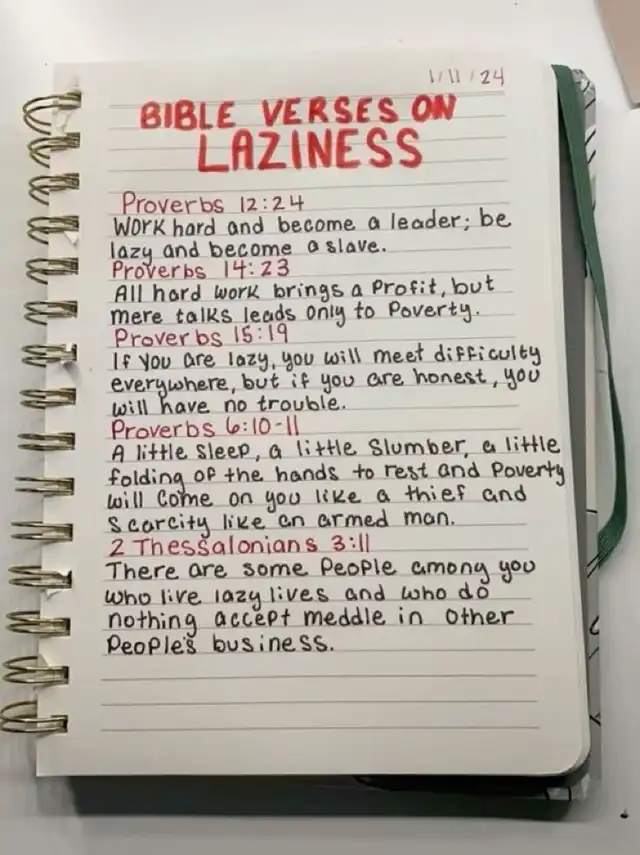 1/11/24
BIBLE VERSES ON
LAZINESS
Proverbs 12:24
Work hard and become a leader; be
lazy and become a slave.
Proverbs 14:23
All hard work brings a Profit, but
mere talks leads only to Poverty.
Proverbs 15:19
If you are lazy, you will meet difficulty
everywhere, but if you are honest, you
will have no trouble.
Proverbs 6:10-11
A little sleep, a little Slumber, a little
folding of the hands to rest and Poverty
will come on you like a thief and
Scarcity like an armed man.
2 Thessalonians 3:11
There are some People among you
who live lazy lives and who do
nothing accept meddle in other
People's business.